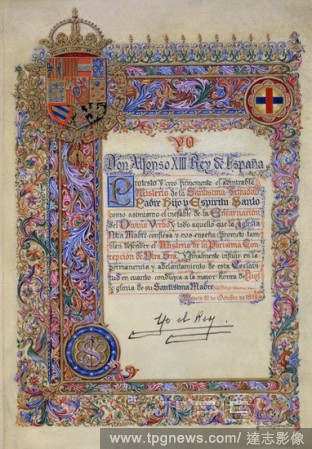 YO
Don Alfonso XIII Rey de España
Protesto y creo firmemente el admirable
Misterio de la Santísima Trinidad
Padre Hijo y Espíritu Santo
como asimismo el inefable de la Encarnación
del Divino Verbo y todo aquello que la Iglesia
Ntra Madre confiesa y nos enseña: Prometo tam-
bien defender el Misterio de la Purísima Con-
cepción de Ntra. Sra. y finalmente influir en la
permanencia y adelantamiento de esta
en cuanto conduzca a la mayor honra de Dios
y gloria de su Santísima Madre
Octubre
Yo el Rey
www.tpgnews.com/ 達志影像